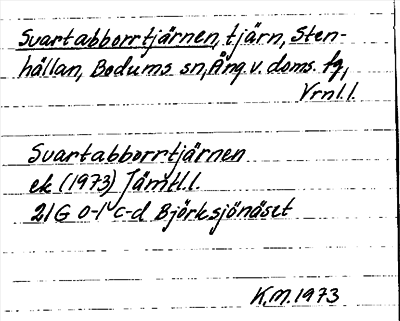 Svartabborrtjärnen, tjärn, Sten-
hällan, Bodums sn, Ång. v. doms. fg,
Vrnl.l.
Svartabborrtjärnen
ek (1973) Jämtl.l.
21G 0-1 c-d Björksjönäset
K.M. 1973